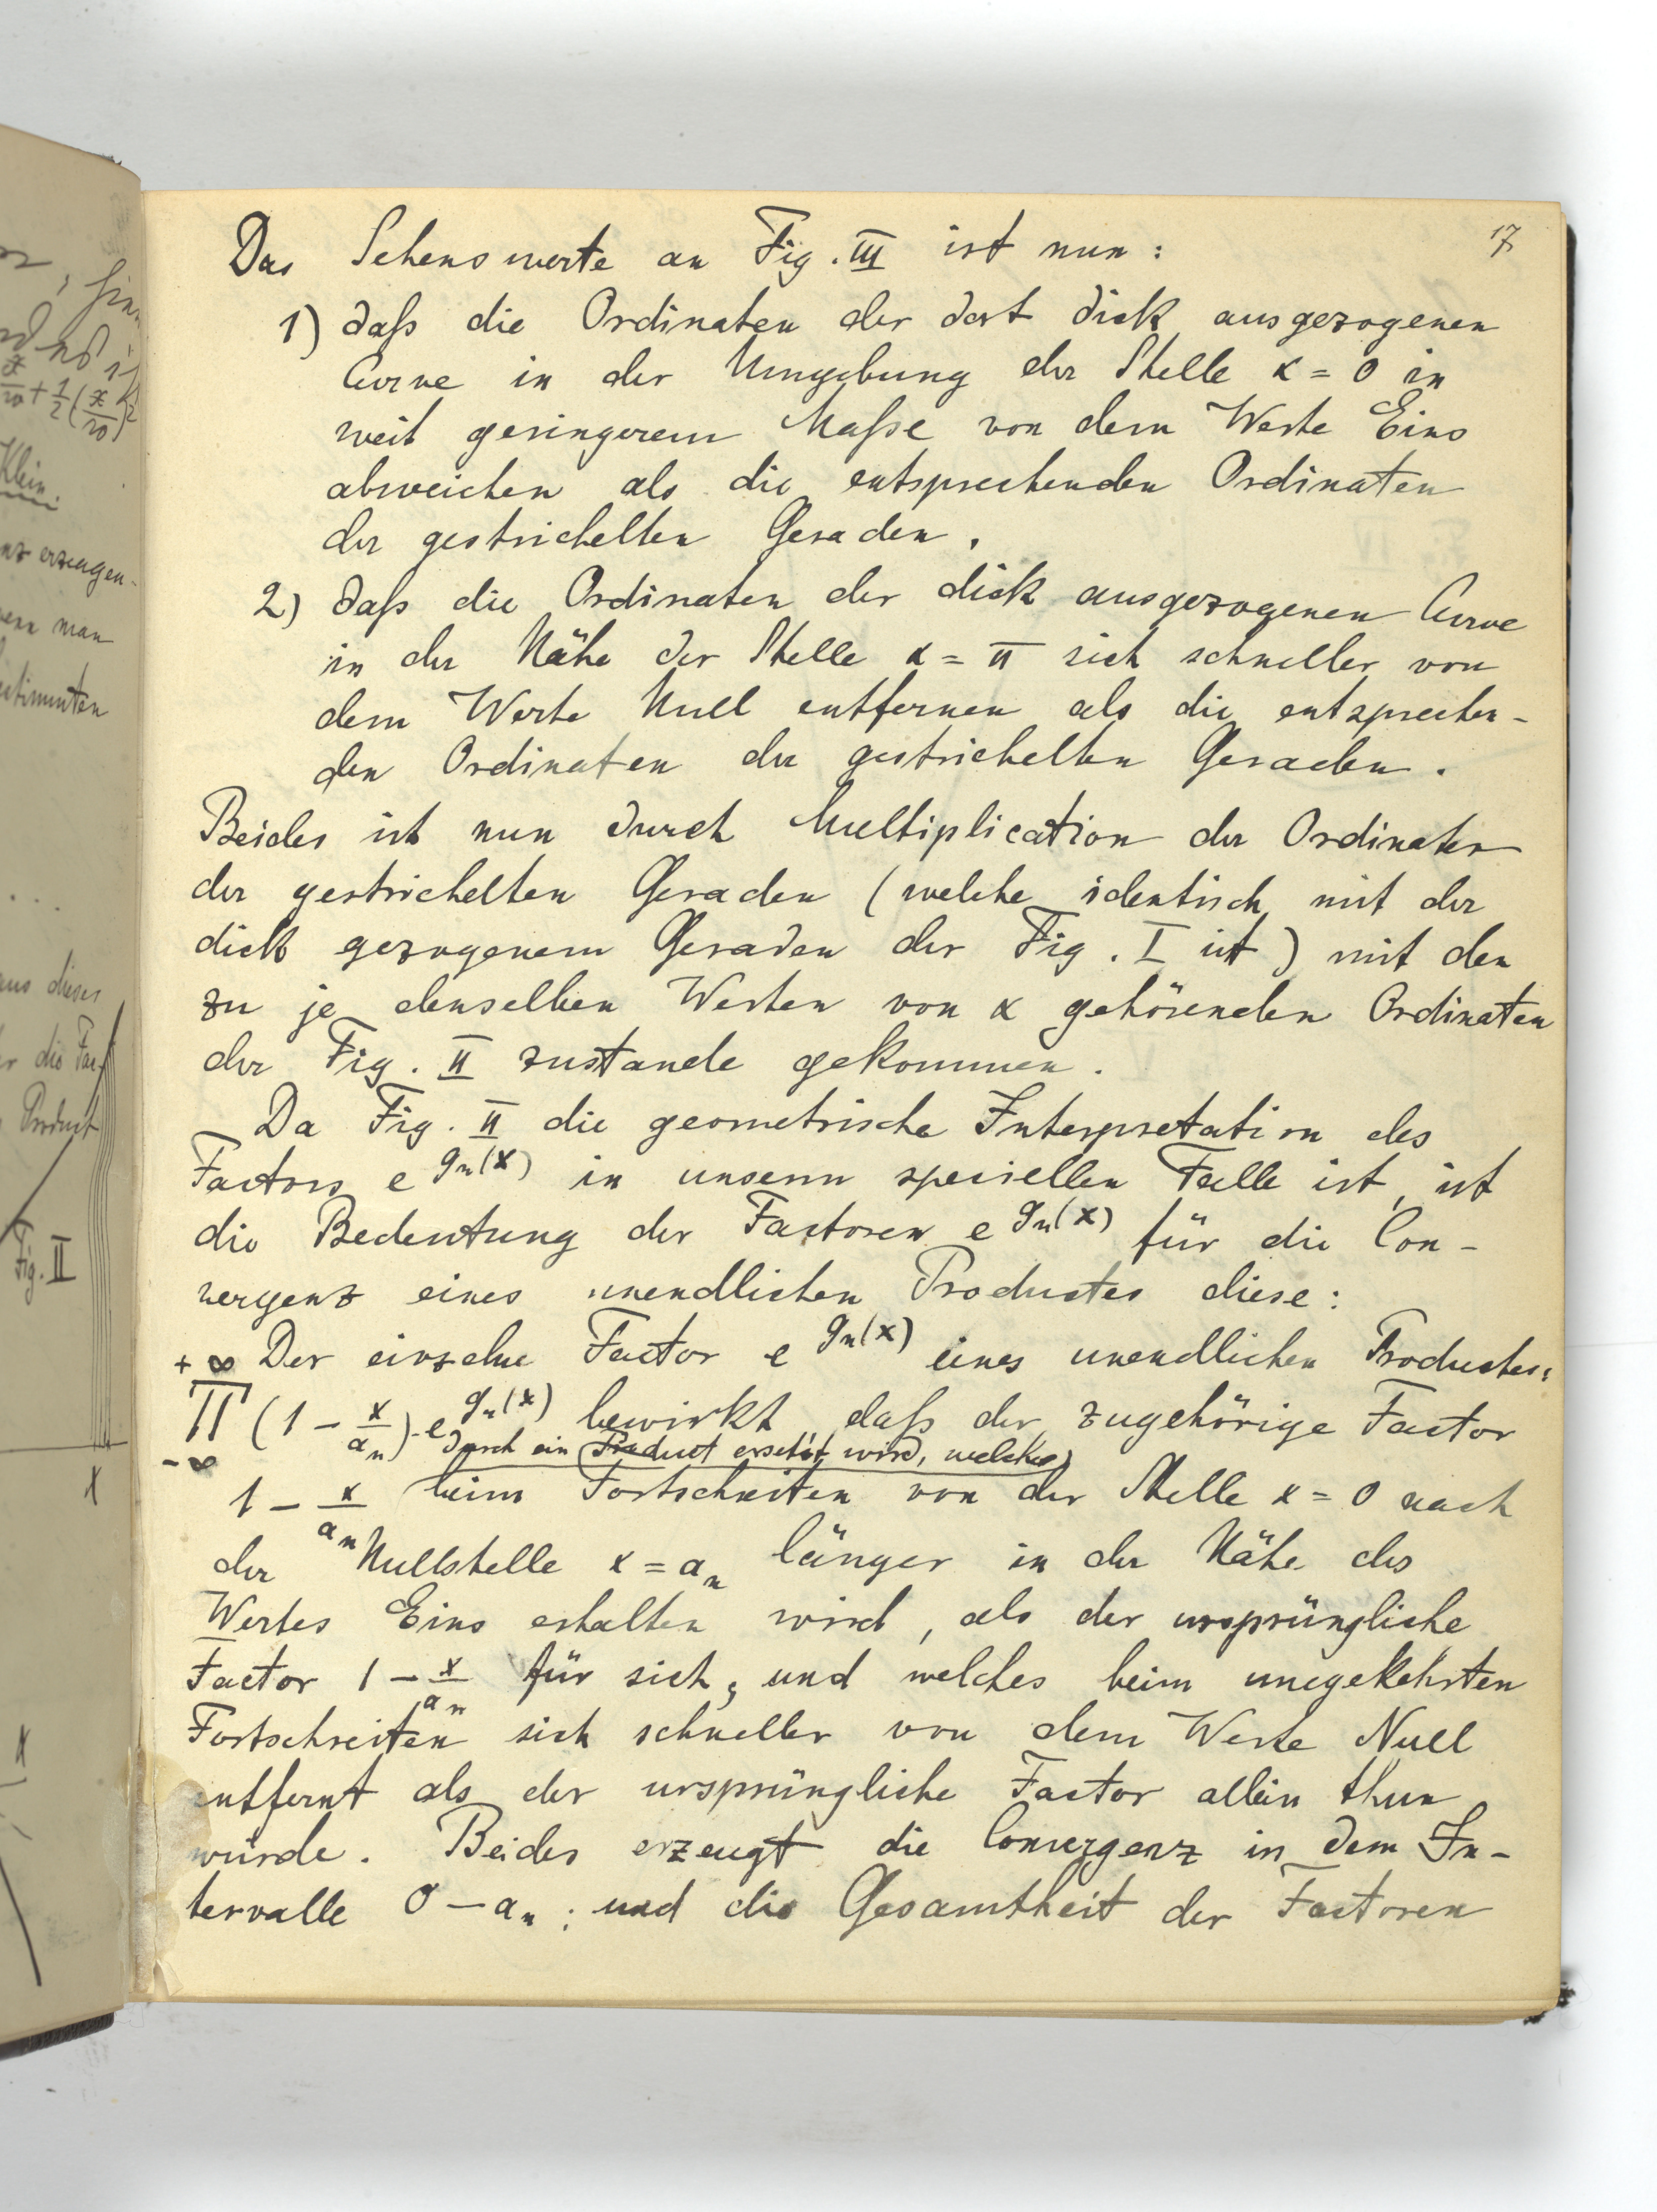 17
Das Sehenswerte an Fig. III ist nun:
1) daß die Ordinaten der dort dick ausgezogenen
Curve in der Umgebung der Stelle x = 0 in
weit geringerem Maße von dem Werte Eins
abweichen als die entsprechenden Ordinaten
der gestrichelten Geraden.
2) daß die Ordinaten der dick ausgezogenen Curve
in der Nähe der Stelle x = π sich schneller von
dem Werte Null entfernen als die entsprechen-
den Ordinaten der gestrichelten Geraden.
Beides ist nun durch Multiplication der Ordinaten
der gestrichelten Geraden (welche identisch mit der
dick gezogenem Geraden der Fig. I ist) mit den
zu je denselben Werten von x gehörenden Ordinaten
der Fig. II zustande gekommen.
Da Fig. II die geometrische Interpretation des
Factors e^{g_n(x)} in unserm speciellen Falle ist, ist
die Bedeutung der Factoren e^{g_n(x)} für die Con-
vergenz eines unendlichen Productes diese:
+∞ Der einzelne Factor e^{g_n(x)} eines unendlichen Productes:
∏ (1 - x/a_n)·e^{g_n(x)} bewirkt, daß der zugehörige Factor
-∞ durch ein Product ersetzt wird, welches
1 - x/a_n beim Fortschreiten von der Stelle x = 0 nach
der Nullstelle x = a_n länger in der Nähe des
Wertes Eins erhalten wird, als der ursprüngliche
Factor 1 - x/a_n für sich, und welches beim umgekehrten
Fortschreiten sich schneller von dem Werte Null
entfernt als der ursprüngliche Factor allein thun
würde. Beides erzeugt die Convergenz in dem In-
tervalle 0 - a_n; und die Gesamtheit der Factoren
Klein.
erzeugen-
man
aus dieses
die Fac-
Product
Fig. II
x
x